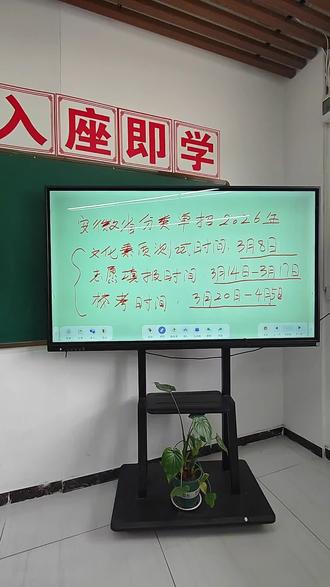 入座即学
安徽省分类单招2026年
文化素质测试时间：3月8日
志愿填报时间 3月14日-3月17日
校考时间：3月20日-4月5日